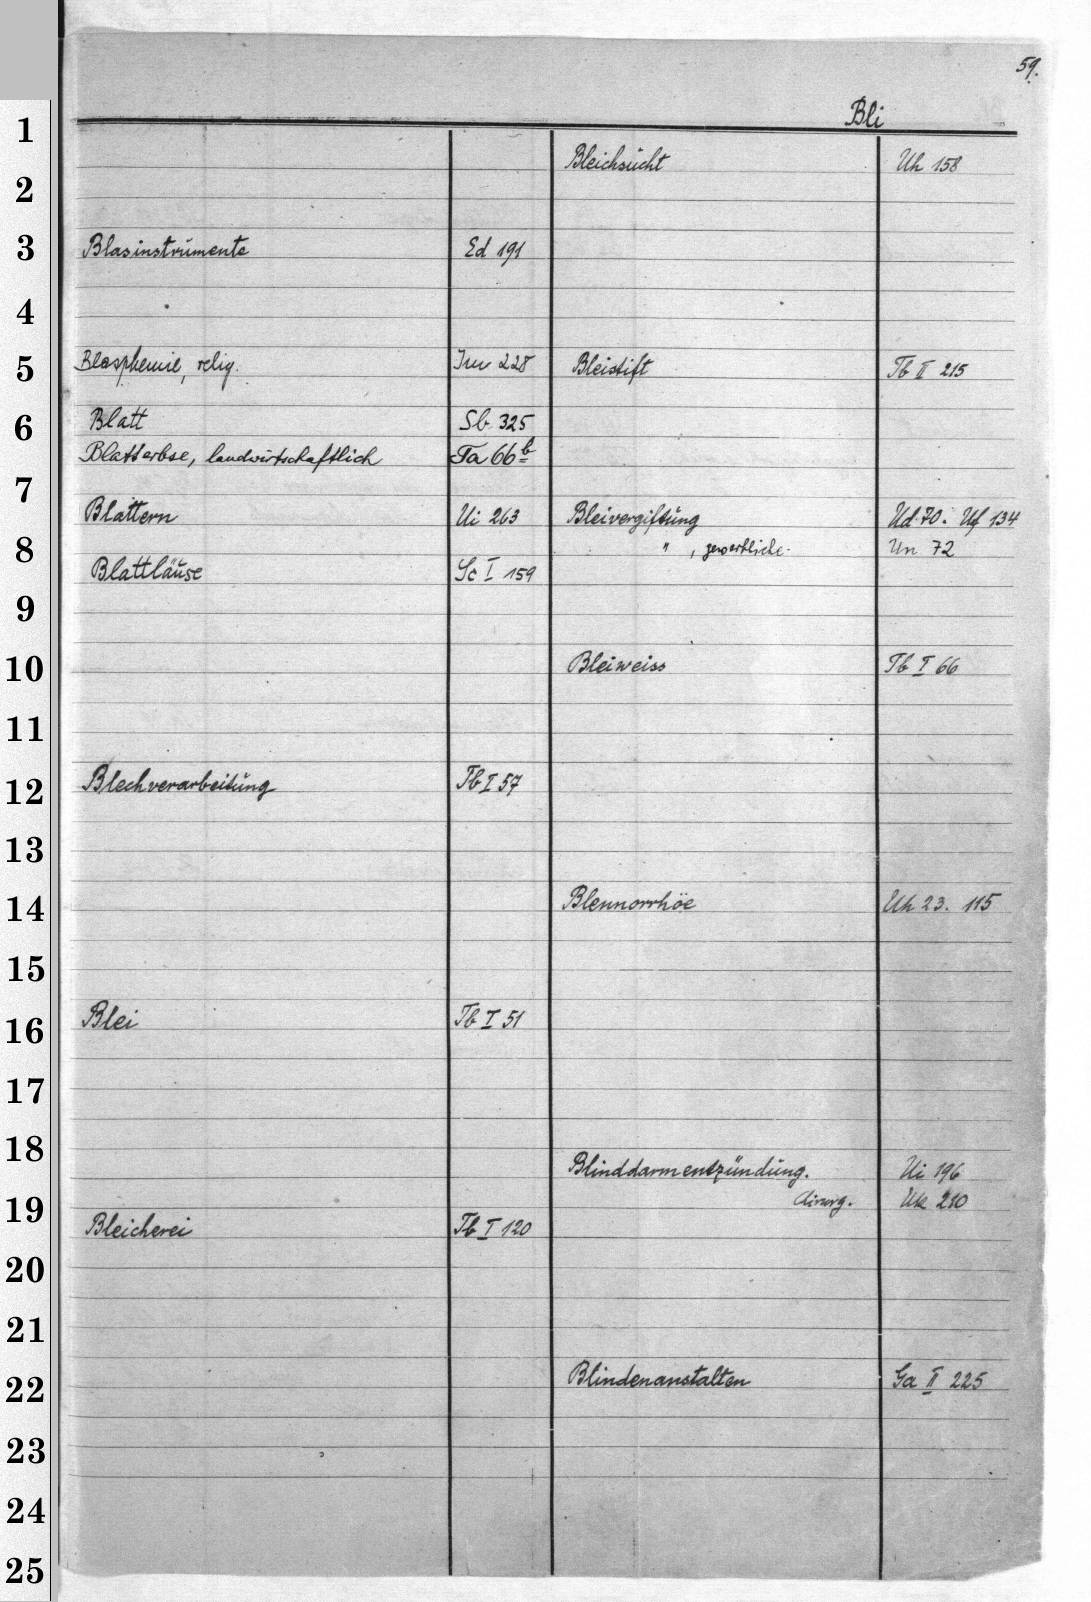 59.
Bli
1
2
3
4
5
6
7
8
9
10
11
12
13
14
15
16
17
18
19
20
21
22
23
24
25
Blasinstrumente Ed 191
Blasphemie, relig. Im 228
Blatt Sb 325
Blatterbse, landwirtschaftlich Ta 66b
Blattern Ui 263
Blattläuse Sc I 159
Blechverarbeitung Tb I 57
Blei Tb I 51
Bleicherei Tb I 120
Bleichsucht Uh 158
Bleistift Tb II 215
Bleivergiftung Ud 70. Uf 134
" , gewerbliche. Un 72
Bleiweiss Tb I 66
Blennorrhöe Uh 23. 115
Blinddarmentzündung. Ui 196
chirurg. Uk 210
Blindenanstalten Ga II 225